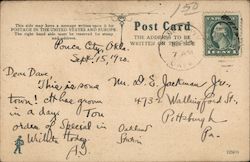 150
This side may have a message written upon it for
POSTAGE IN THE UNITED STATES AND EUROPE.
The right hand side must be reserved for stamp
and address.
Post Card
THE ADDRESS TO BE
WRITTEN ON THIS SIDE
Ponca City, Okla.
Sept. 15, 1920.
Dear Dave,
This is some
town! It has grown
in a day. Ten
orders of Special in
Wichita today
A.J.
Mr. D. E. Jackman Jr.
4732 Wallingford St.
Pittsburgh
Pa.
Oakland
Station